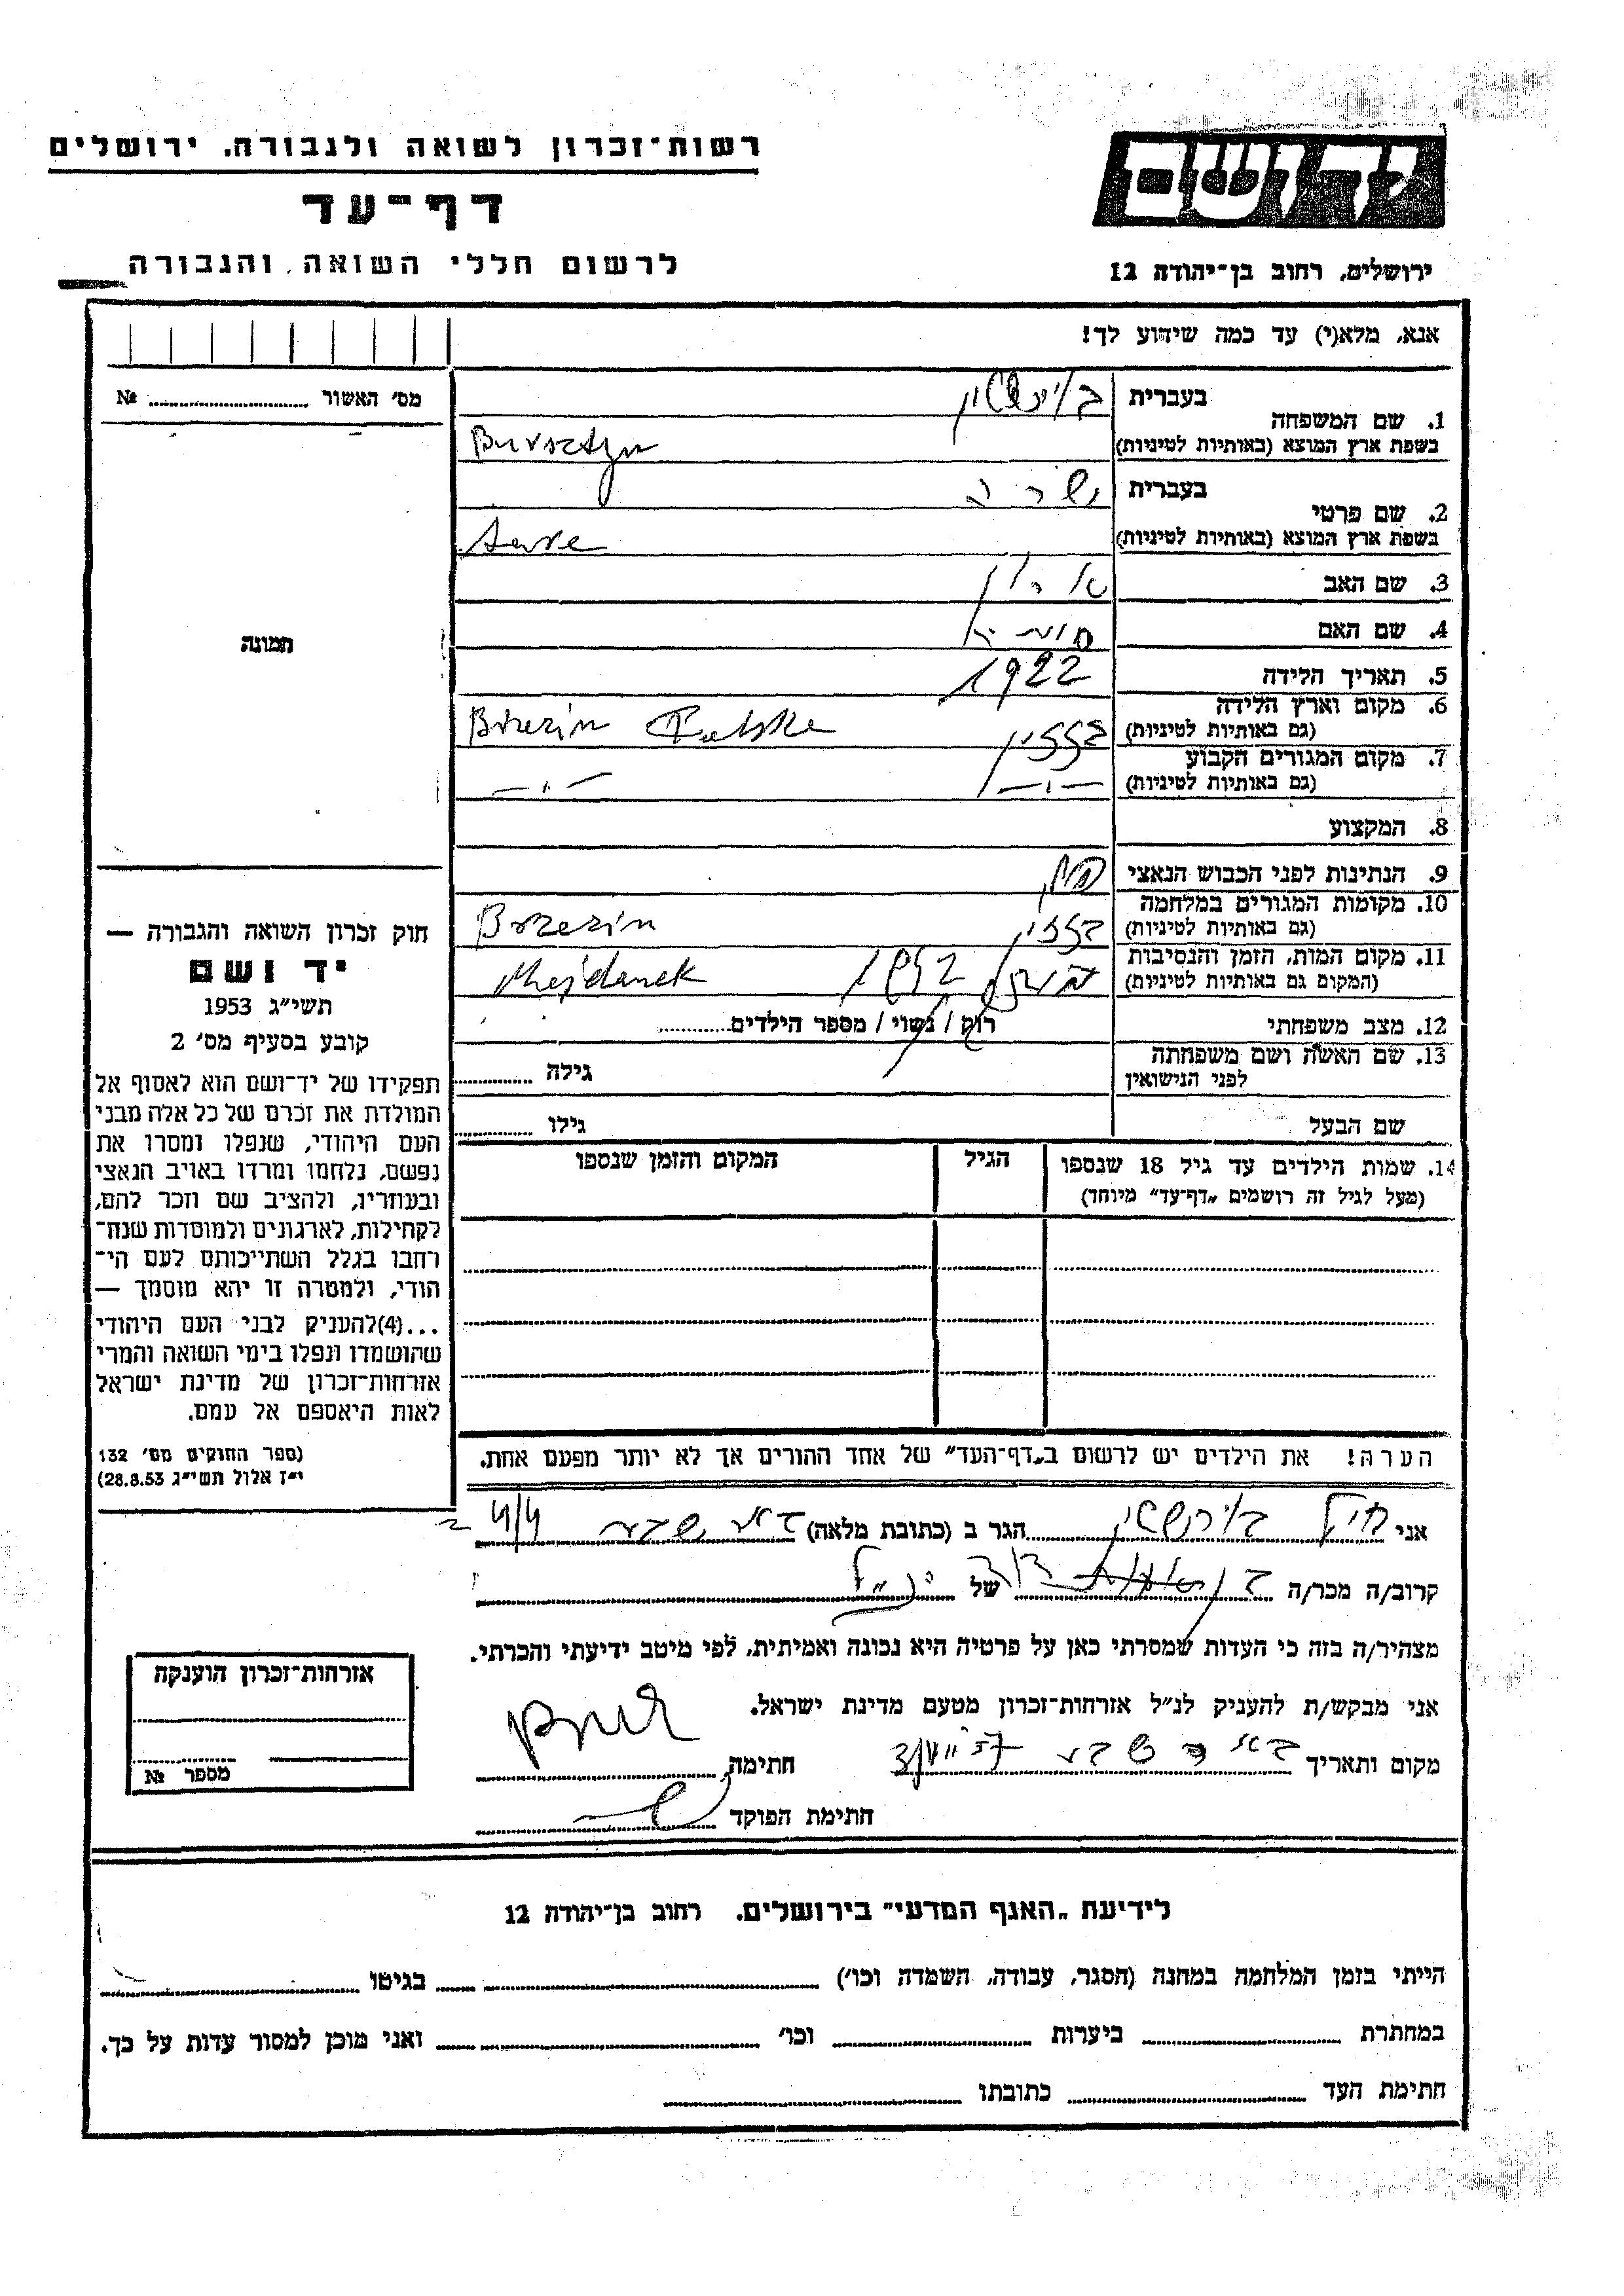 רשות־זכרון לשואה ולגבורה. ירושלים
דף־עד
לרשום חללי השואה והגבורה
יד ושם
ירושלים, רחוב בן־יהודה 12
אנא, מלא(י) עד כמה שידוע לך!
מס׳ האשור № ........
1. שם המשפחה
בעברית
בשפת ארץ המוצא (באותיות לטיניות) Bursztyn
2. שם פרטי
בעברית
בשפת ארץ המוצא (באותיות לטיניות)
3. שם האב
4. שם האם
תמונה
5. תאריך הלידה 1922
6. מקום וארץ הלידה
(גם באותיות לטיניות) ברזזין Brzezin
7. מקום המגורים הקבוע
(גם באותיות לטיניות) —״— —״—
8. המקצוע
9. הנתינות לפני הכבוש הנאצי
10. מקומות המגורים במלחמה
(גם באותיות לטיניות) Brzezin
11. מקום המות, הזמן והנסיבות
(המקום גם באותיות לטיניות) 1942 Majdanek
12. מצב משפחתי רווק / נשוי / מספר הילדים........
13. שם האשה ושם משפחתה
לפני הנישואין
גילה ........
שם הבעל גילו ........
14. שמות הילדים עד גיל 18 שנספו
(מעל לגיל זה רושמים „דף־עד״ מיוחד)
הגיל
המקום והזמן שנספו
הערה! את הילדים יש לרשום ב„דף־העד״ של אחד ההורים אך לא יותר מפעם אחת.
חוק זכרון השואה והגבורה —
יד ושם
תשי״ג 1953
קובע בסעיף מס׳ 2
תפקידו של יד־ושם הוא לאסוף אל
המולדת את זכרם של כל אלה מבני
העם היהודי, שנפלו ומסרו את
נפשם, נלחמו ומרדו באויב הנאצי
ובעוזריו, ולהציב שם וזכר להם,
לקהילות, לארגונים ולמוסדות שנח־
רחבו בגלל השתייכותם לעם הי־
הודי, ולמטרה זו יהא מוסמך —
...(4)להעניק לבני העם היהודי
שהושמדו ונפלו בימי השואה והמרי
אזרחות־זכרון של מדינת ישראל
לאות היאספם אל עמם.
(ספר החוקים מס׳ 132
י״ז אלול תשי״ג 28.8.53)
אני בורשטין הגר ב (כתובת מלאה) באר שבע
קרוב/ה מכר/ה של
מצהיר/ה בזה כי העדות שמסרתי כאן על פרטיה היא נכונה ואמיתית, לפי מיטב ידיעתי והכרתי.
אני מבקש/ת להעניק לנ״ל אזרחות־זכרון מטעם מדינת ישראל.
מקום ותאריך באר שבע חתימה
חתימת הפוקד
אזרחות־זכרון הוענקה
מספר №
לידיעת „האגף המדעי״ בירושלים. רחוב בן־יהודה 12
הייתי בזמן המלחמה במחנה (הסגר, עבודה, השמדה וכו׳) ........ בגיטו ........
במחתרת ........ ביערות ........ וכו׳ ........ ואני מוכן למסור עדות על כך.
חתימת העד ........ כתובתו ........